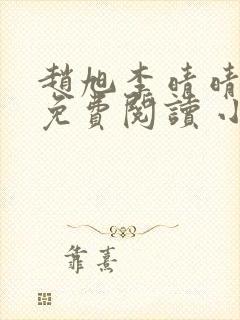 趙旭李晴晴
免費閱讀小
靠熹